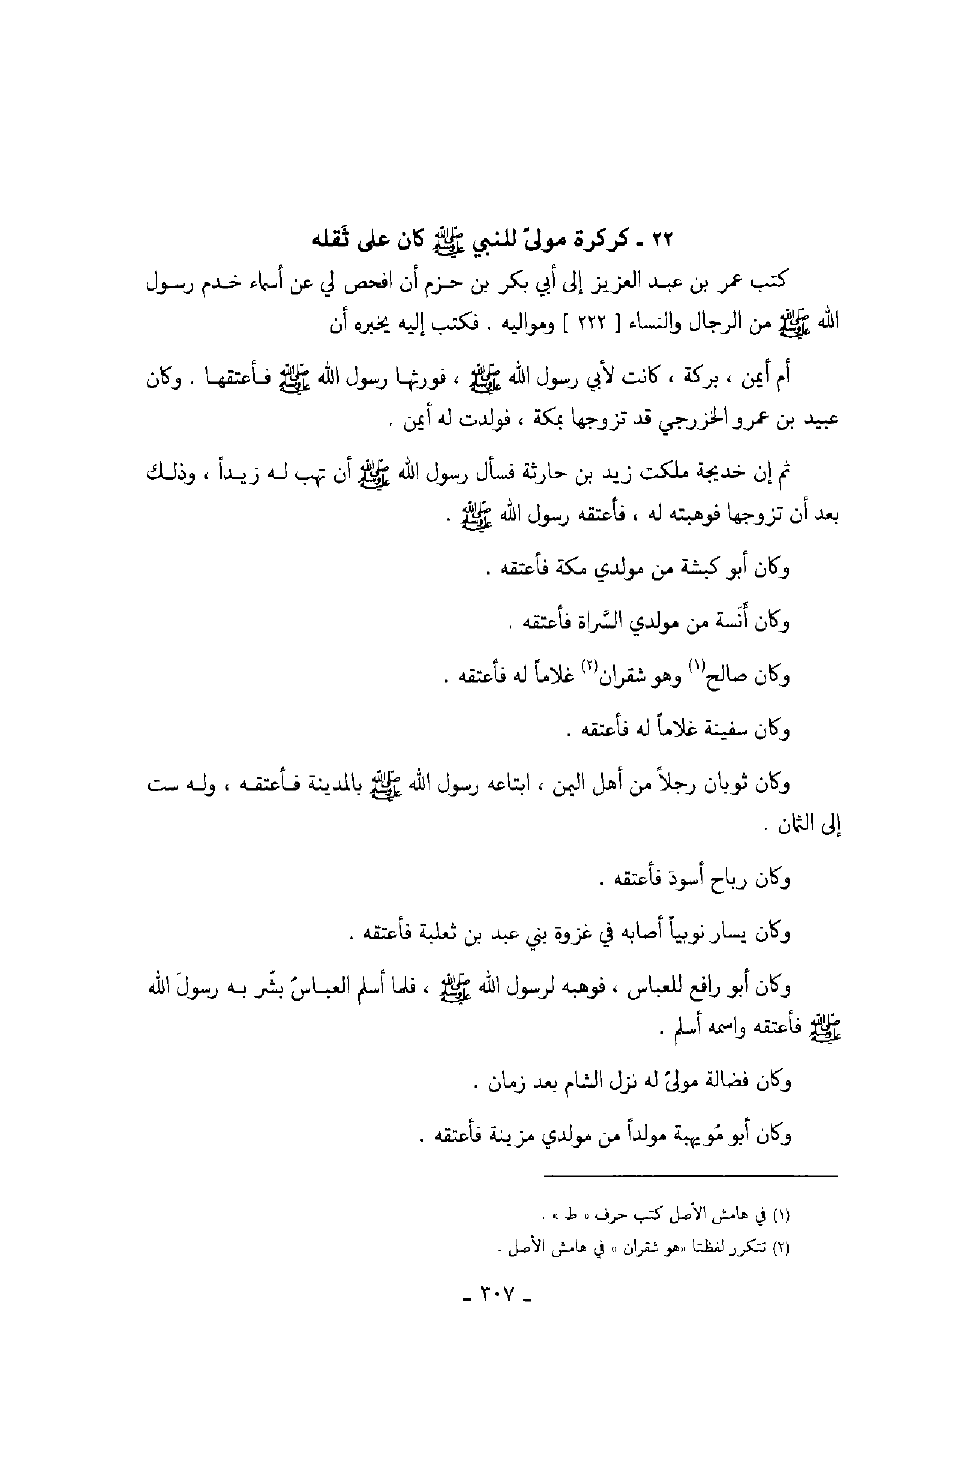 ٢٢ - كركرة مولىً للنبي ﷺ كان على ثَقله
كتب عمر بن عبد العزيز إلى أبي بكر بن حزم أن افحص لي عن أسماء خدم رسول
الله ﷺ من الرجال والنساء [ ٢٢٢ ] ومواليه . فكتب إليه يخبره أن
أم أيمن ، بركة ، كانت لأبي رسول الله ﷺ ، فورثها رسول الله ﷺ فأعتقها . وكان
عبيد بن عمرو الخزرجي قد تزوجها بمكة ، فولدت له أيمن .
ثم إن خديجة ملكت زيد بن حارثة فسأل رسول الله ﷺ أن تهب له زيداً ، وذلك
بعد أن تزوجها فوهبته له ، فأعتقه رسول الله ﷺ .
وكان أبو كبشة من مولدي مكة فأعتقه .
وكان أَنَسة من مولدي السَّراة فأعتقه .
وكان صالح(١) وهو شقران(٢) غلاماً له فأعتقه .
وكان سفينة غلاماً له فأعتقه .
وكان ثوبان رجلاً من أهل اليمن ، ابتاعه رسول الله ﷺ بالمدينة فأعتقه ، وله ست
إلى الثمان .
وكان رباح أسودَ فأعتقه .
وكان يسار نوبياً أصابه في غزوة بني عبد بن ثعلبة فأعتقه .
وكان أبو رافع للعباس ، فوهبه لرسول الله ﷺ ، فلما أسلم العباسُ بشّر به رسولَ الله
ﷺ فأعتقه واسمه أسلم .
وكان فضالة مولىً له نزل الشام بعد زمان .
وكان أبو مُويهبة مولداً من مولدي مزينة فأعتقه .
(١) في هامش الأصل كتب حرف « ط » .
(٢) تتكرر لفظتا «هو شقران » في هامش الأصل .
- ٣٠٧ -